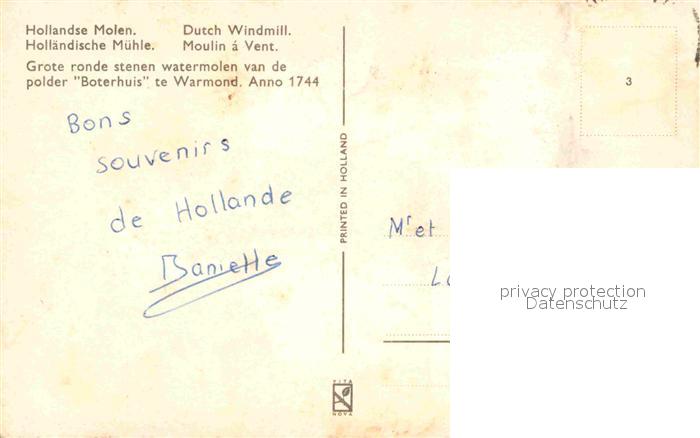 Hollandse Molen. Dutch Windmill.
Holländische Mühle. Moulin á Vent.
Grote ronde stenen watermolen van de
polder "Boterhuis" te Warmond. Anno 1744
Bons
souvenirs
de Hollande
PRINTED IN HOLLAND
3
Mr et
privacy protection
Datenschutz
NOVA